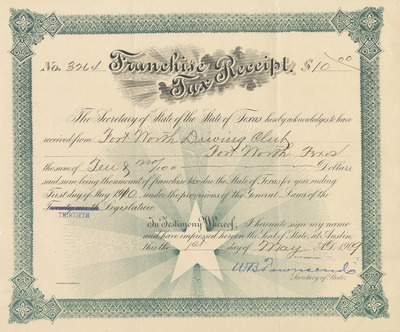 No. 3264 Franchise Tax Receipt. $10.00
The Secretary of State of the State of Texas hereby acknowledges to have
received from Fort Worth Driving Club
Fort Worth, Texas
the sum of Ten & no/100 Dollars
said sum being the amount of franchise tax due the State of Texas for year ending
First day of May 1910 under the provisions of the General Laws of the
Twenty-ninth Legislature.
THIRTIETH
In Testimony Whereof, I hereunto sign my name
and have impressed hereon the Seal of State, at Austin,
this the 1st day of May A.D. 1909
W B Townsend
Secretary of State.